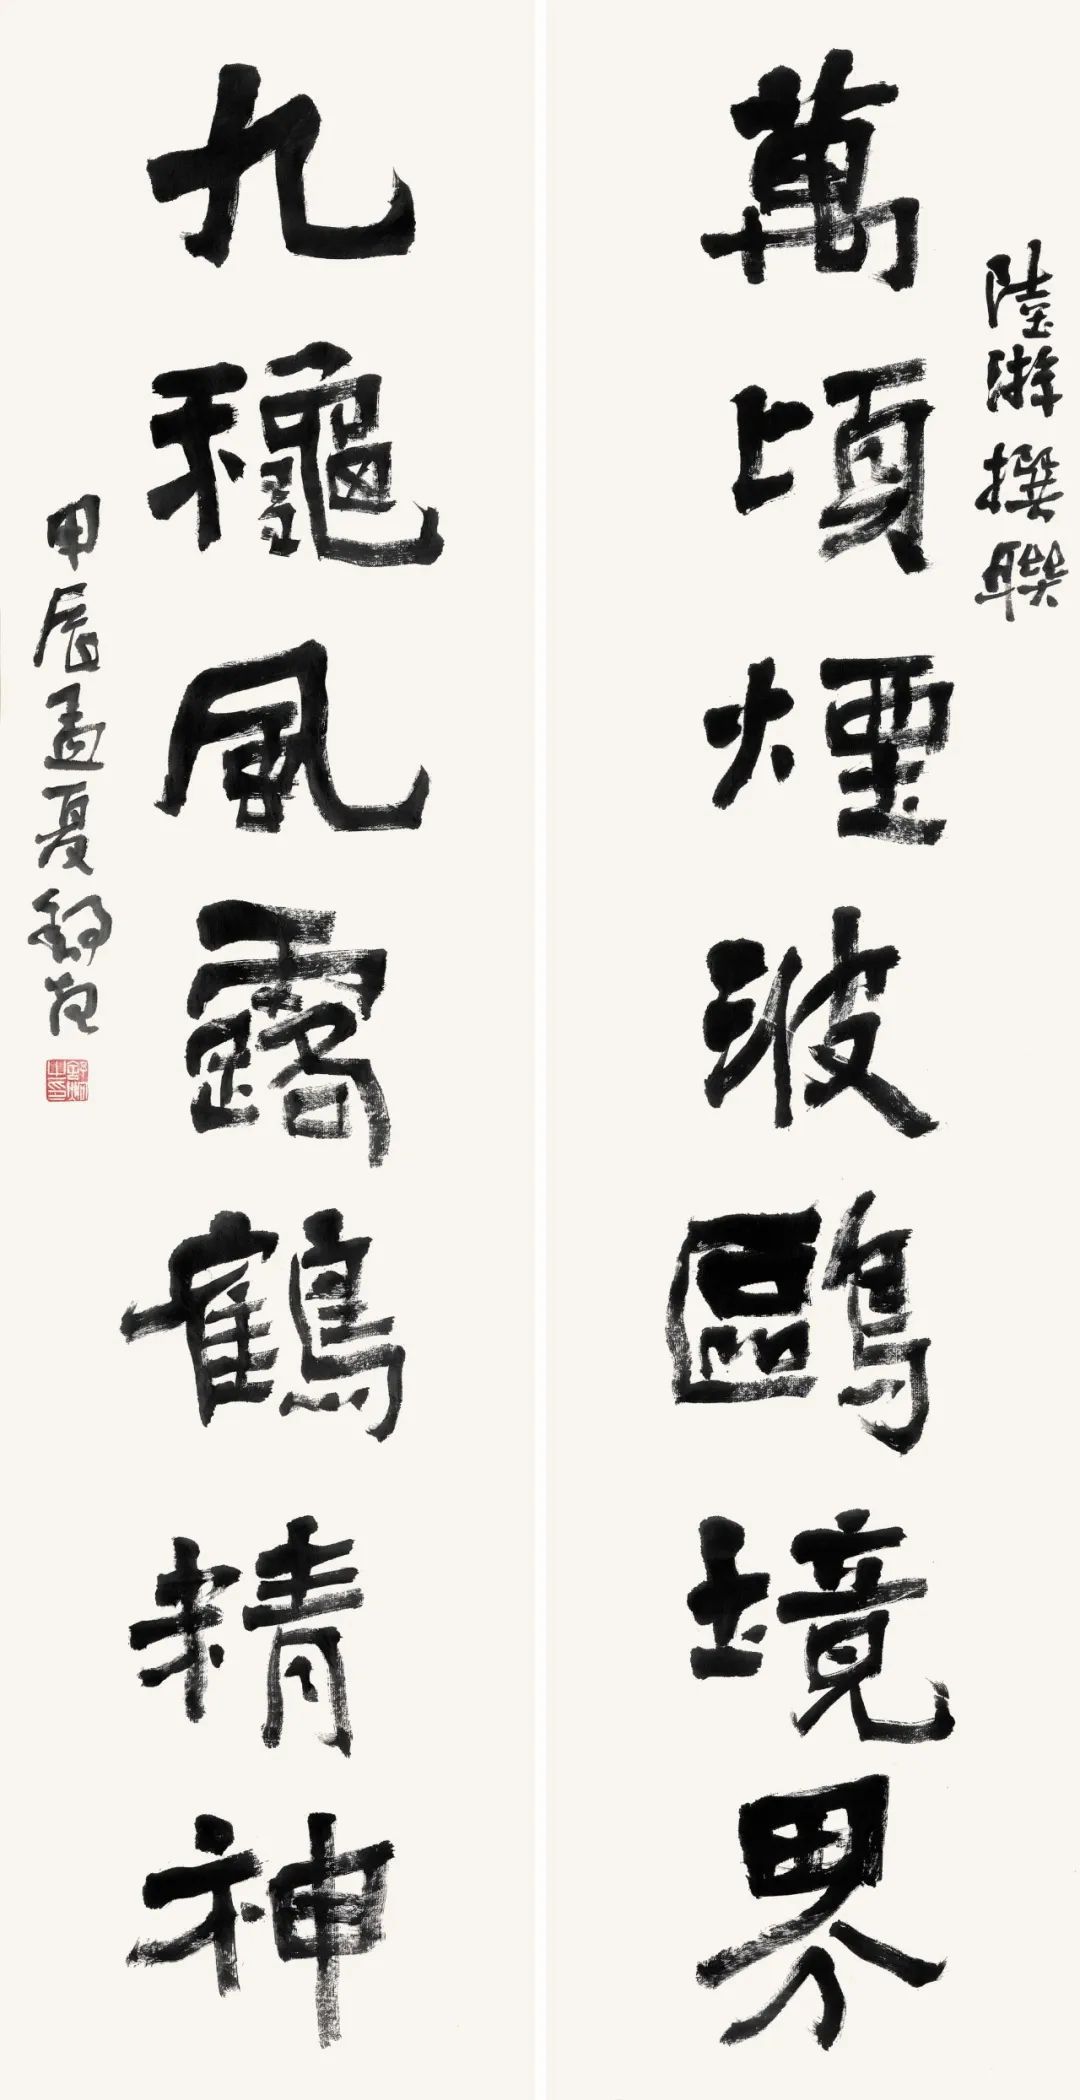 陸游撰聯
萬頃煙波鷗境界
九龝風露鶴精神
甲辰孟夏